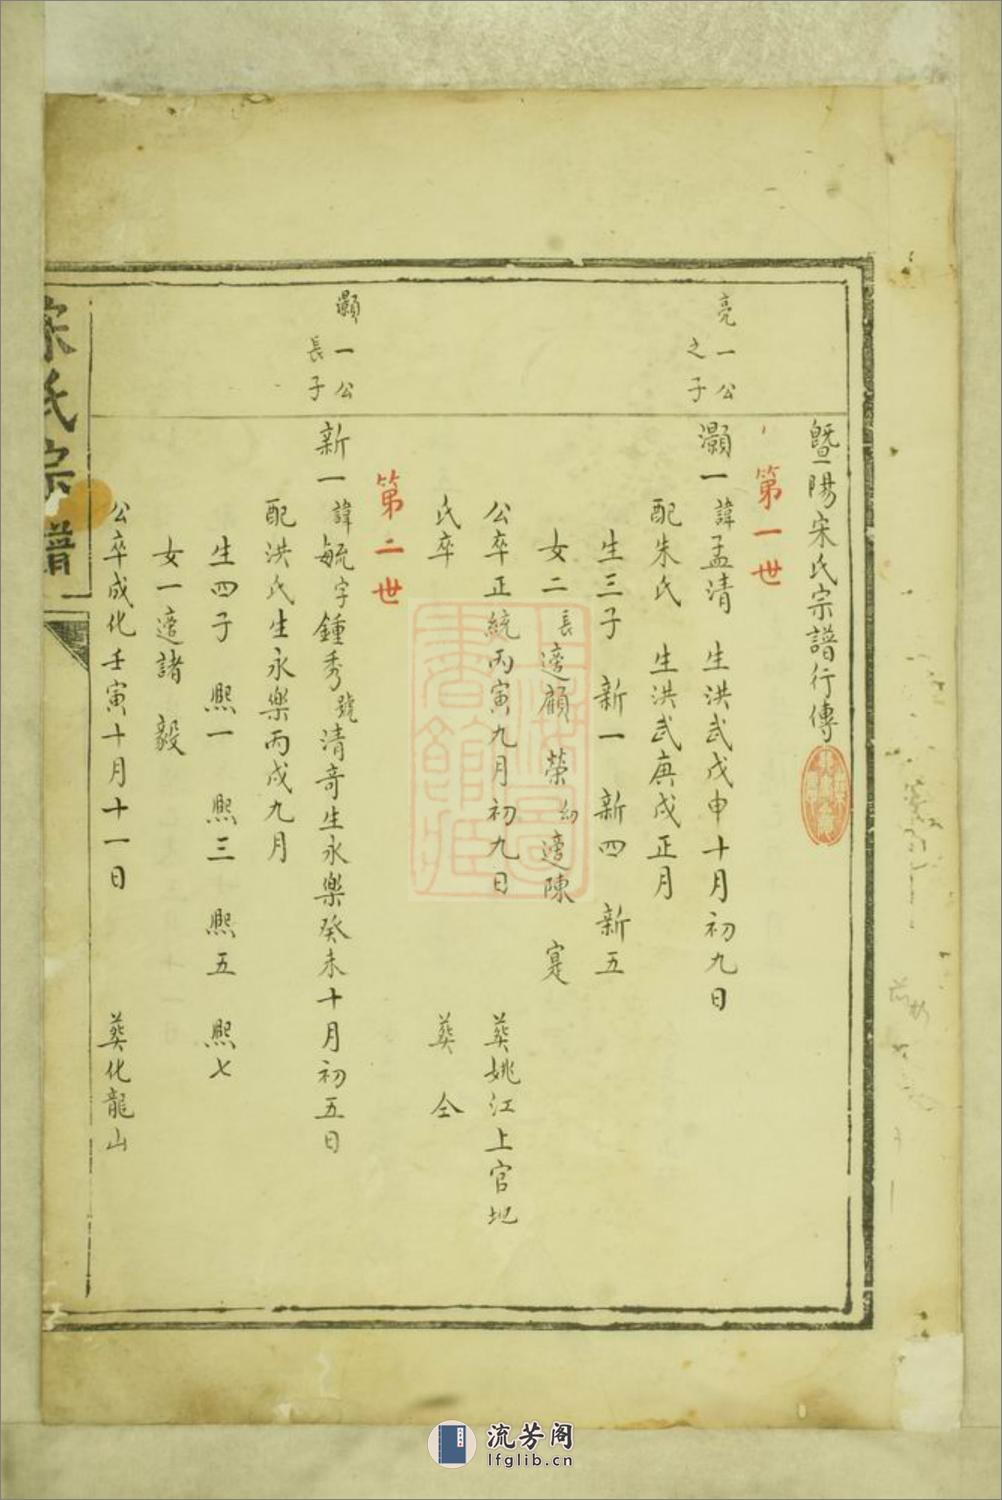 暨陽宋氏宗譜行傳
第一世
亮一公
之子
灝一 諱孟清 生洪武戊申十月初九日
配朱氏 生洪武庚戌正月
生三子 新一 新四 新五
女二 長適顧 榮 幼適陳 寔
公卒正統丙寅九月初九日 葬姚江上官地
氏卒 葬 仝
第二世
灝一公
長子
新一 諱毓字鍾秀號清奇生永樂癸未十月初五日
配洪氏生永樂丙戌九月
生四子 熙一 熙三 熙五 熙七
女一適諸 毅
公卒成化壬寅十月十一日 葬化龍山
宋氏宗譜
上海圖書館藏
流芳阁
lfglib.cn